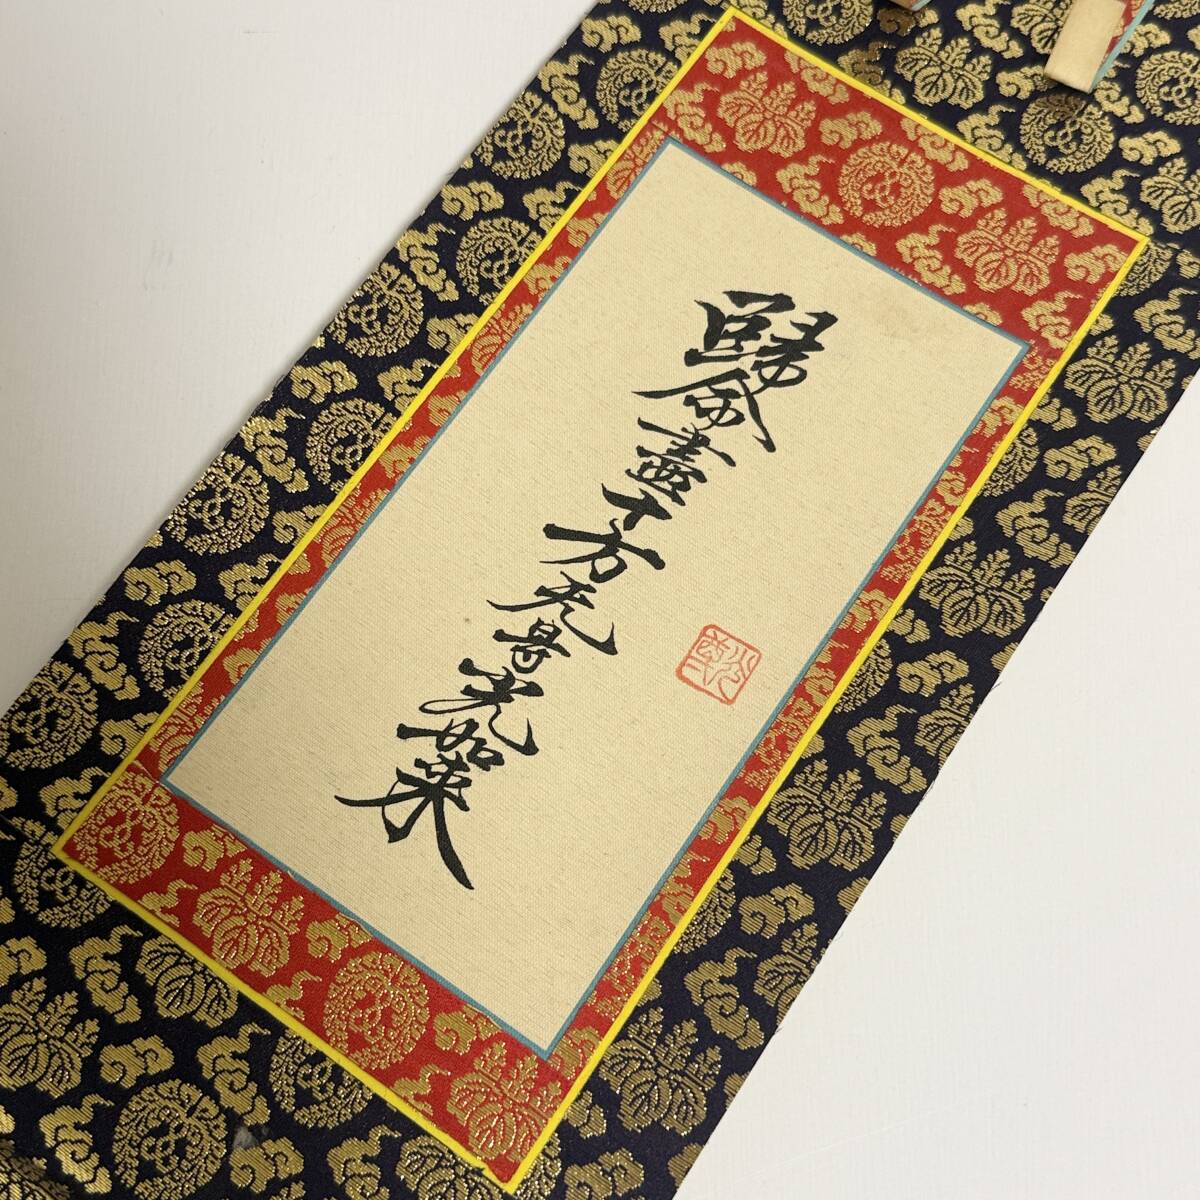 歸命盡十方无导光如来